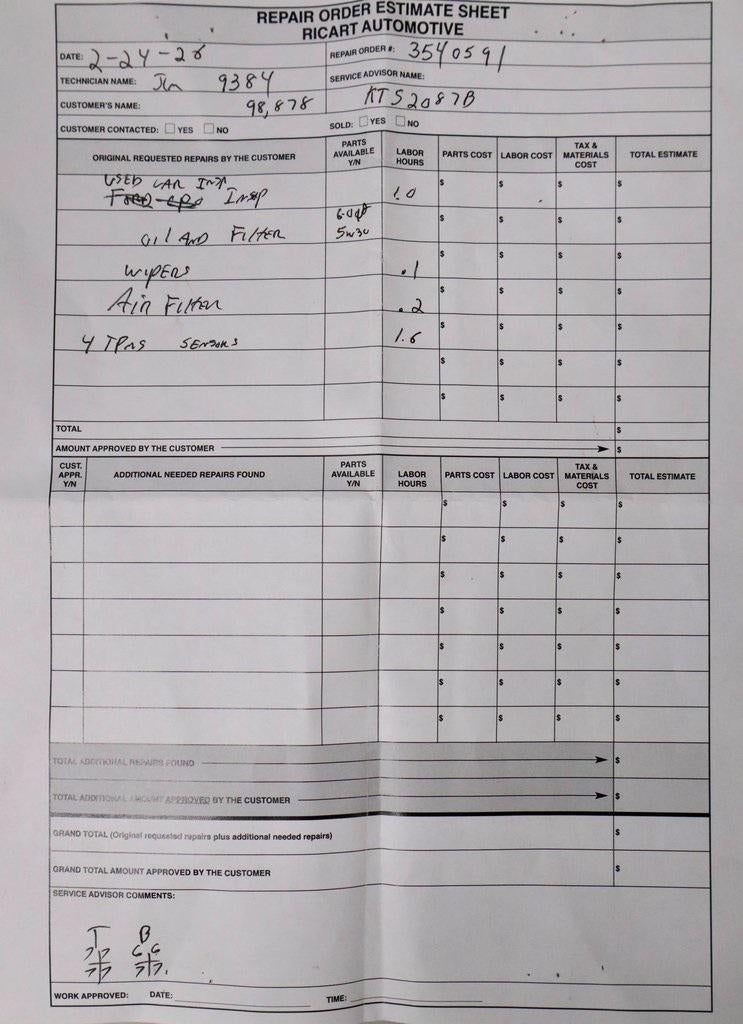 REPAIR ORDER ESTIMATE SHEET
RICART AUTOMOTIVE
DATE: 2-24-26
REPAIR ORDER #: 3540591
TECHNICIAN NAME: Jim 9384
SERVICE ADVISOR NAME:
CUSTOMER'S NAME: 98,878
KTS2087B
CUSTOMER CONTACTED: ☐ YES ☐ NO
SOLD: ☐ YES ☐ NO
ORIGINAL REQUESTED REPAIRS BY THE CUSTOMER PARTS AVAILABLE Y/N LABOR HOURS PARTS COST LABOR COST TAX & MATERIALS COST TOTAL ESTIMATE
USED CAR INSP
INSP 1.0 $ $ $ $
OIL AND FILTER 6.0qt 5W30 $ $ $ $
WIPERS .1 $ $ $ $
AIR FILTER .2 $ $ $ $
4 TPMS SENSORS 1.6 $ $ $ $
$ $ $ $
$ $ $ $
TOTAL $
AMOUNT APPROVED BY THE CUSTOMER $
CUST. APPR. Y/N ADDITIONAL NEEDED REPAIRS FOUND PARTS AVAILABLE Y/N LABOR HOURS PARTS COST LABOR COST TAX & MATERIALS COST TOTAL ESTIMATE
$ $ $ $
$ $ $ $
$ $ $ $
$ $ $ $
$ $ $ $
$ $ $ $
$ $ $ $
TOTAL ADDITIONAL REPAIRS FOUND $
TOTAL ADDITIONAL AMOUNT APPROVED BY THE CUSTOMER $
GRAND TOTAL (Original requested repairs plus additional needed repairs) $
GRAND TOTAL AMOUNT APPROVED BY THE CUSTOMER $
SERVICE ADVISOR COMMENTS:
T B
7 7 6 6
7 7 7 7
WORK APPROVED: DATE: TIME: